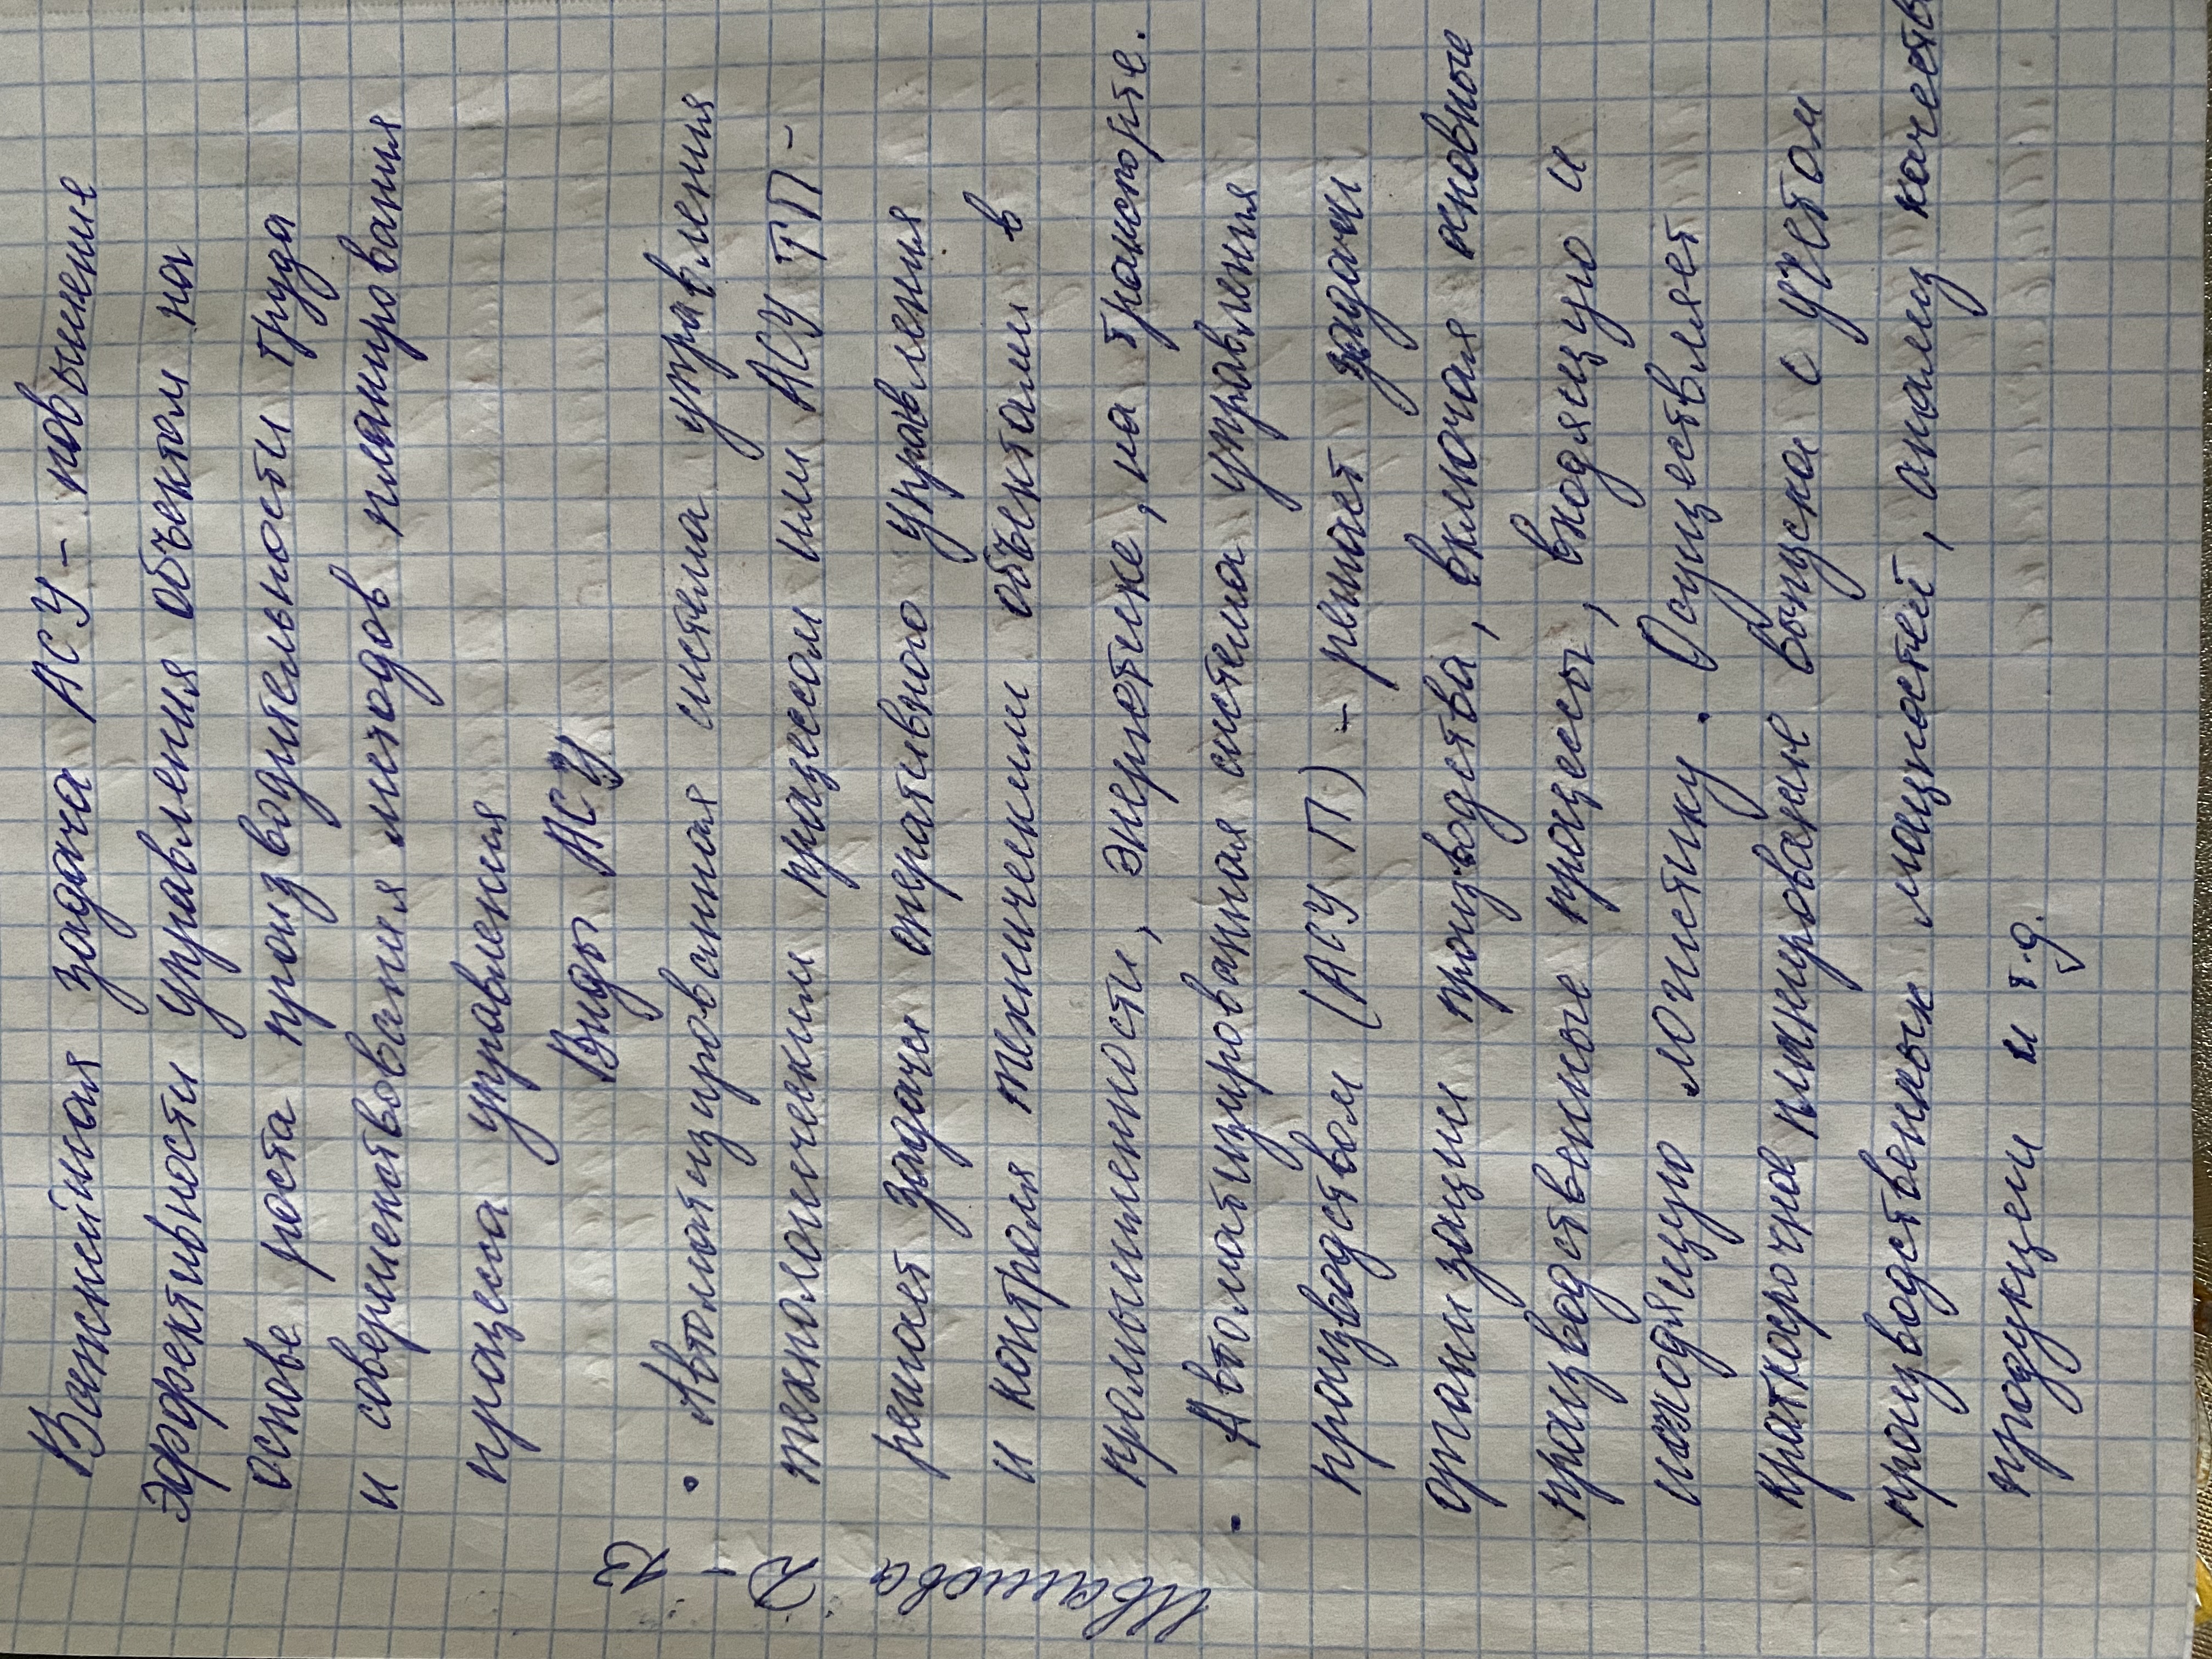 Важнейшая задача АСУ - повышение
эффективности управления объектом на
основе роста производительности труда
и совершенствования методов планирования
процесса управления
Виды АСУ
• Автоматизированная система управления
технологическим процессом или АСУ ТП -
решает задачи оперативного управления
и контроля техническими объектами в
промышленности, энергетике, на транспорте.
• Автоматизированная система управления
производством (АСУ П) - решает задачи
организации производства, включая основные
производственные процессы, входящую и
исходящую логистику. Осуществляет
краткосрочное планирование выпуска с учётом
производственных мощностей, анализ качества
продукции и т.д.